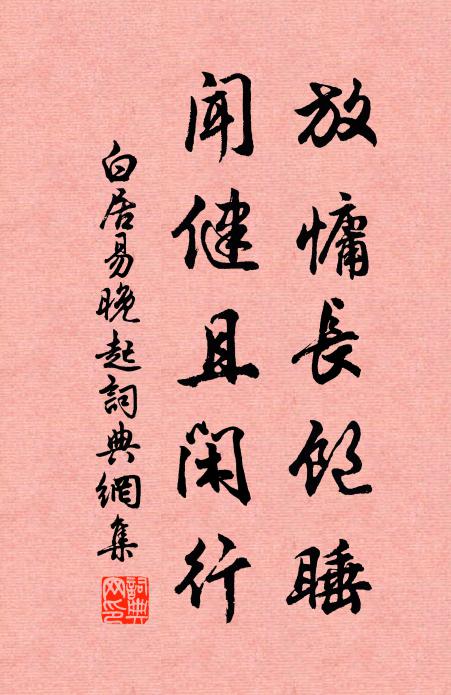 放慵長飽睡
聞健且閑行
白居易晚起詞典網集
詞典網印